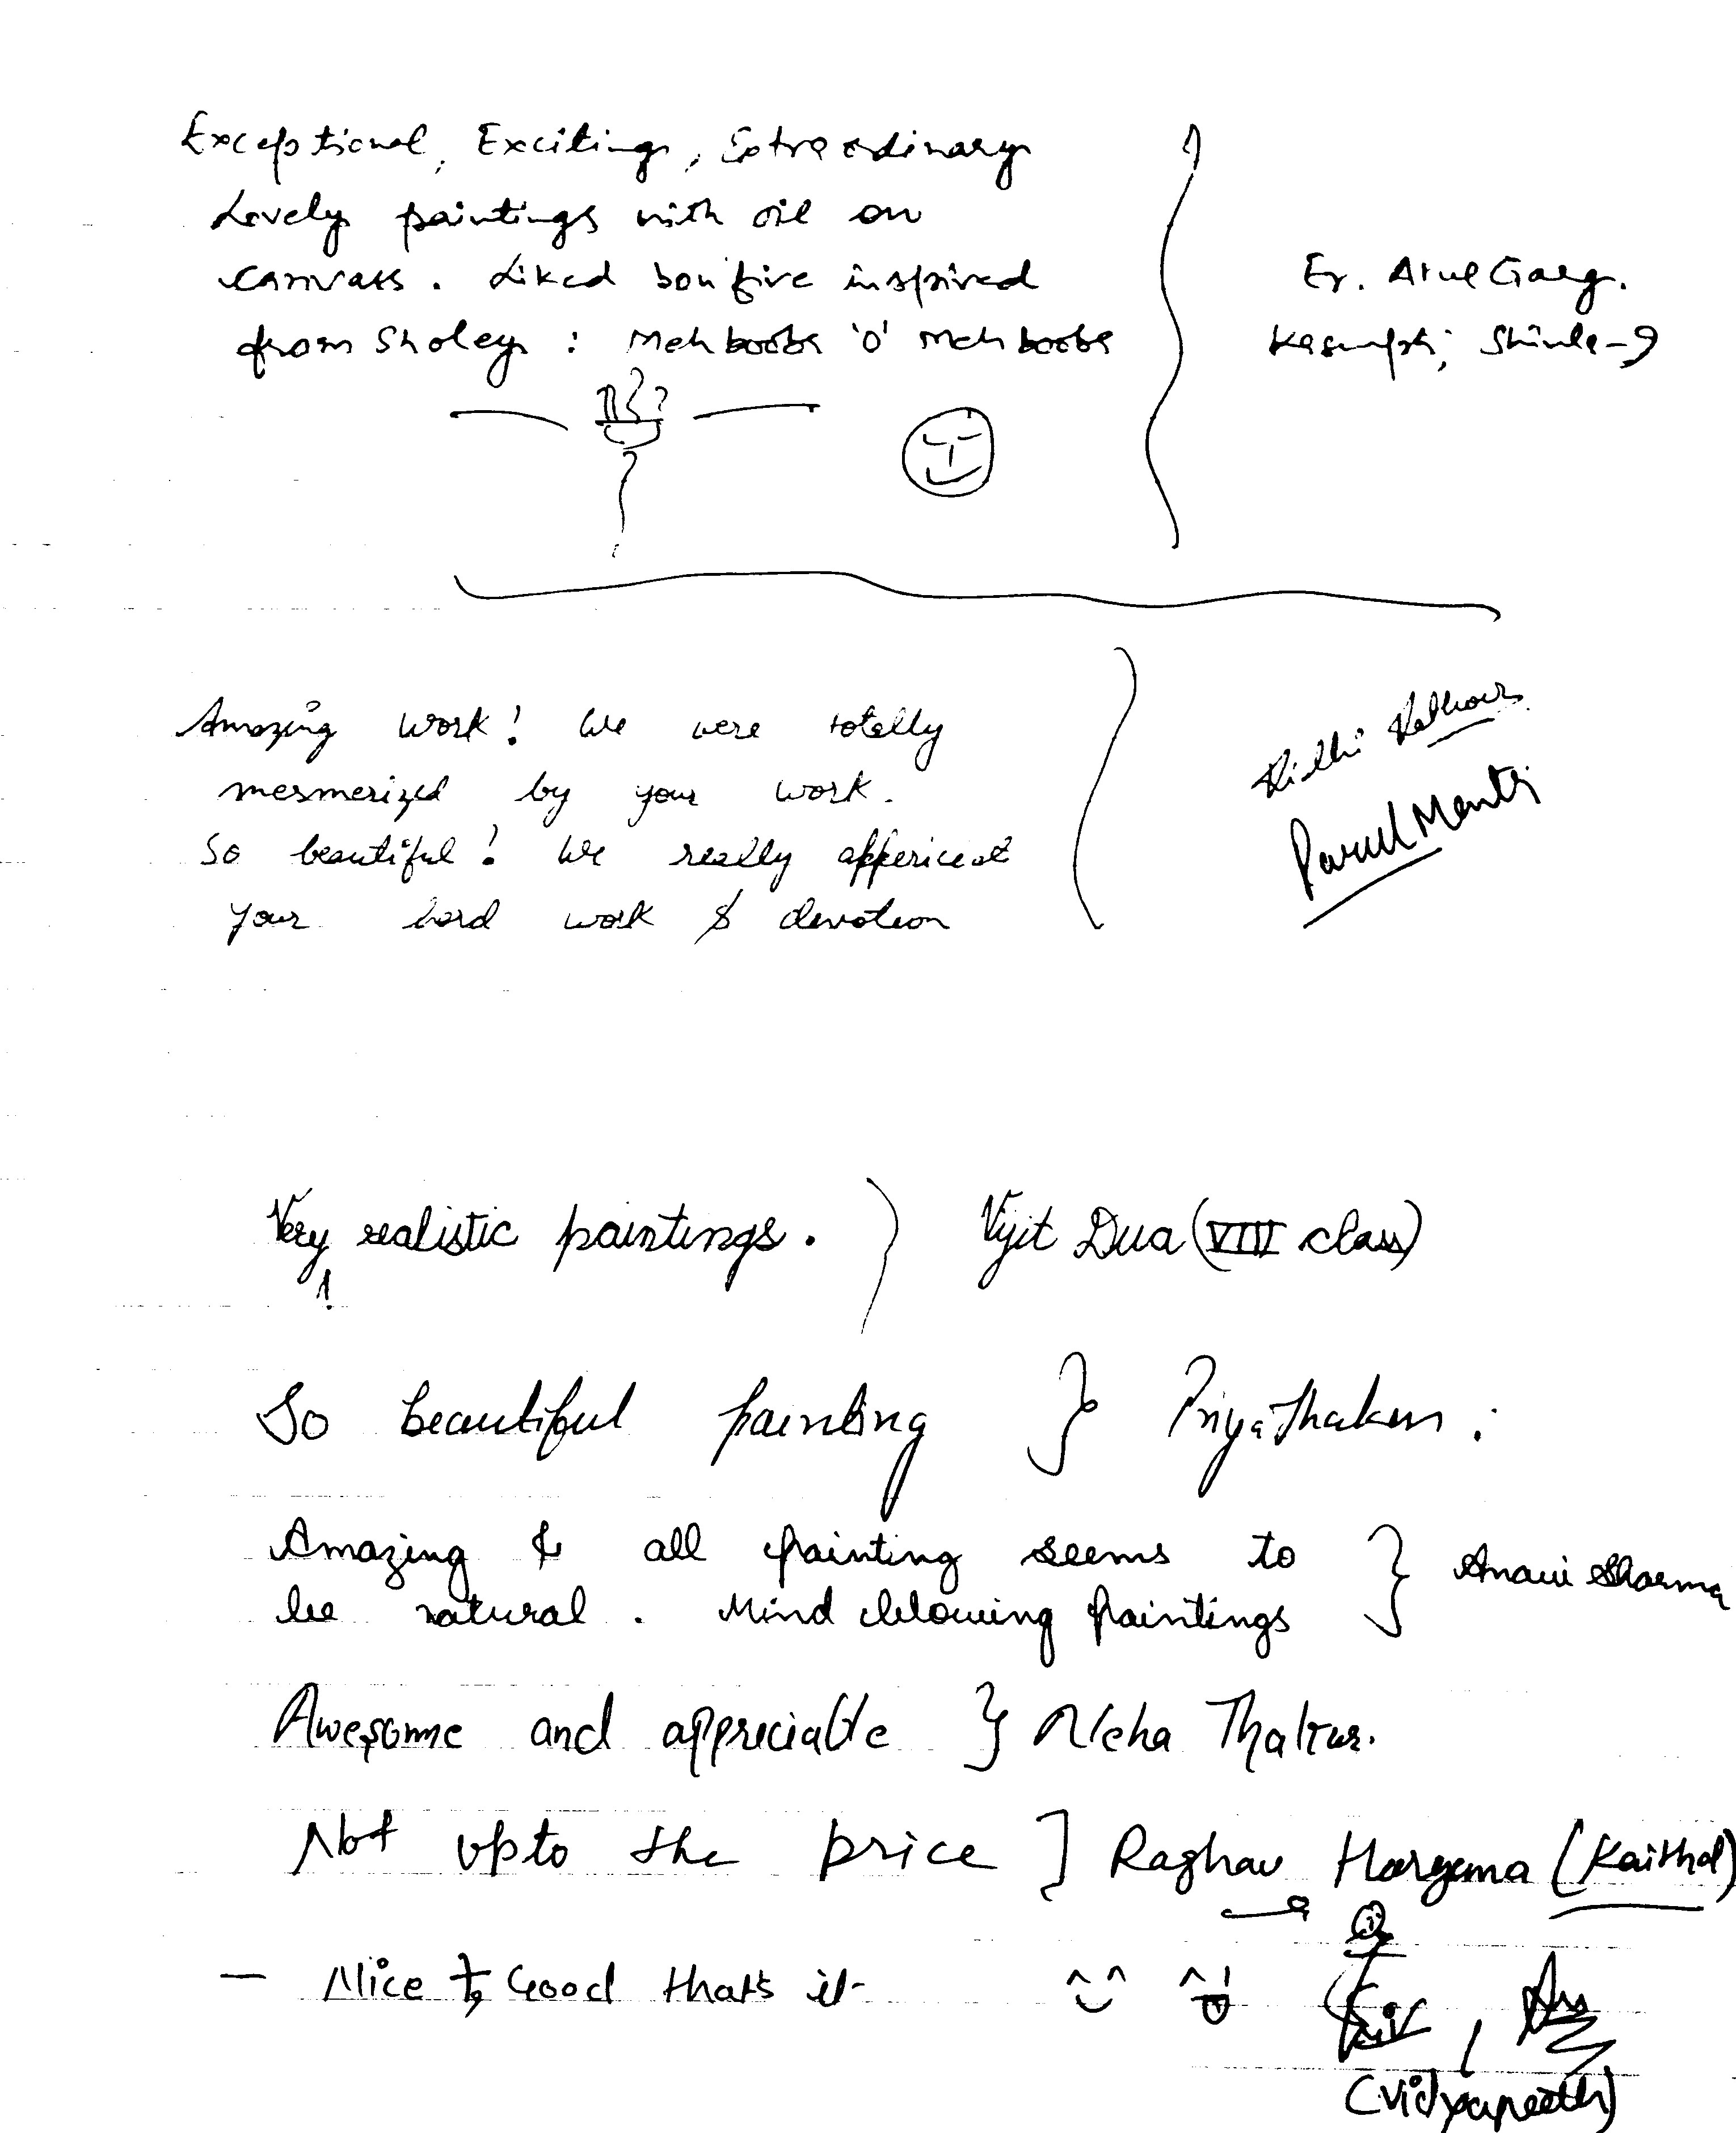 Exceptional, Exciting, Extraordinary
Lovely paintings with oil on
canvass. Liked bonfire inspired
from Sholey : Mehbooba 'O' Mehbooba
Er. Atul Garg.
Kasumpti, Shimla-9
Amazing work! We were totally
mesmerized by your work.
So beautiful! We really appericeat
your hard work & devotion
Parul
Very realistic paintings. Vijit Dua (VIII class)
!
So beautiful painting } Priya Thakur :
Amazing & all painting seems to
be natural. Mind blowing paintings } Sharma
Awesome and appreciable } Neha Thakur.
Not upto the price ] Raghav Haryana (Kaithal)
— Nice & Good that's it
(Vidyapeeth)